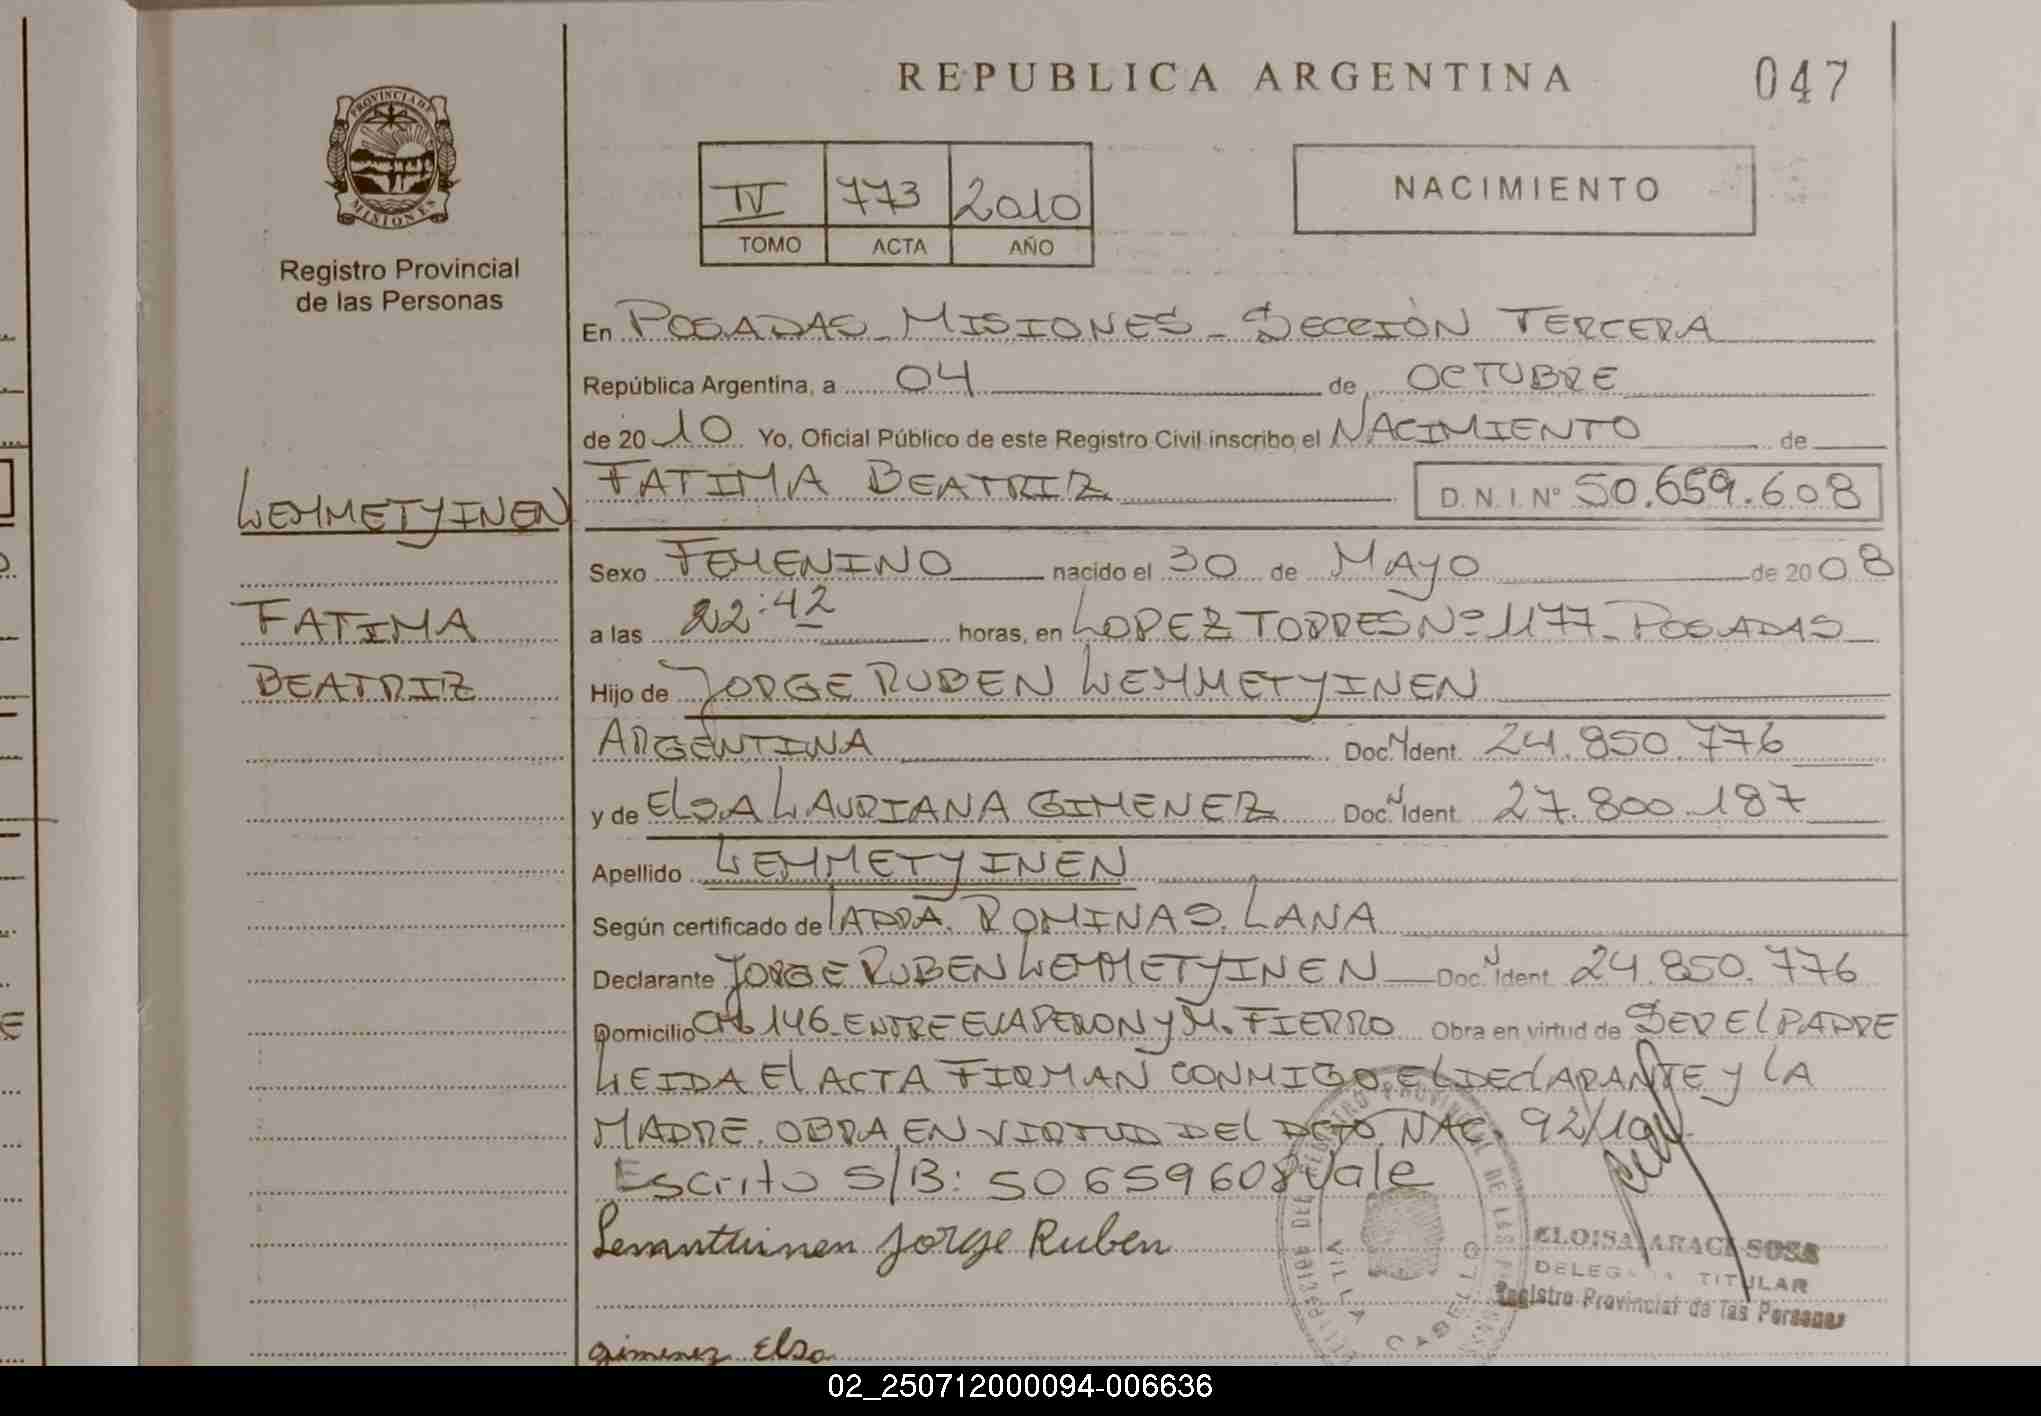 REPUBLICA ARGENTINA
047
PROVINCIA DE
MISIONES
Registro Provincial
de las Personas
IV 773 2010
TOMO ACTA AÑO
NACIMIENTO
En POSADAS - MISIONES - SECCIÓN TERCERA
República Argentina, a 04 de OCTUBRE
de 2010 Yo, Oficial Público de este Registro Civil inscribo el NACIMIENTO de
FATIMA BEATRIZ D.N.I. Nº 50.659.608
LEMMETYINEN
FATIMA
BEATRIZ
Sexo FEMENINO nacido el 30 de MAYO de 2008
a las 22:42 horas, en LOPEZ TORRES Nº 1177 - POSADAS
Hijo de JORGE RUBEN LEMMETYINEN
ARGENTINA Doc. Ident. 24.850.776
y de ELSA LAURIANA GIMENEZ Doc. Ident. 27.800.187
Apellido LEMMETYINEN
Según certificado de ROMINA S. LANA
Declarante JORGE RUBEN LEMMETYINEN Doc. Ident. 24.850.776
Domicilio CH 146 - ENTRE EVA PERON y M. FIERRO Obra en virtud de SER EL PADRE
LEIDA El ACTA FIRMAN CONMIGO El DEClARANTE y LA
MADRE. OBRA EN VIRTUD DEl DCTO NAC. 92/10
Escrito S/B: 50659608 Vale
Jorge Ruben
REGISTRO PROVINCIAL DE LAS PERSONAS
VILLA CABELLO
ELOISA ARACI SOSA
DELEGADA TITULAR
Registro Provincial de las Personas
Gimenez Elsa
02_250712000094-006636